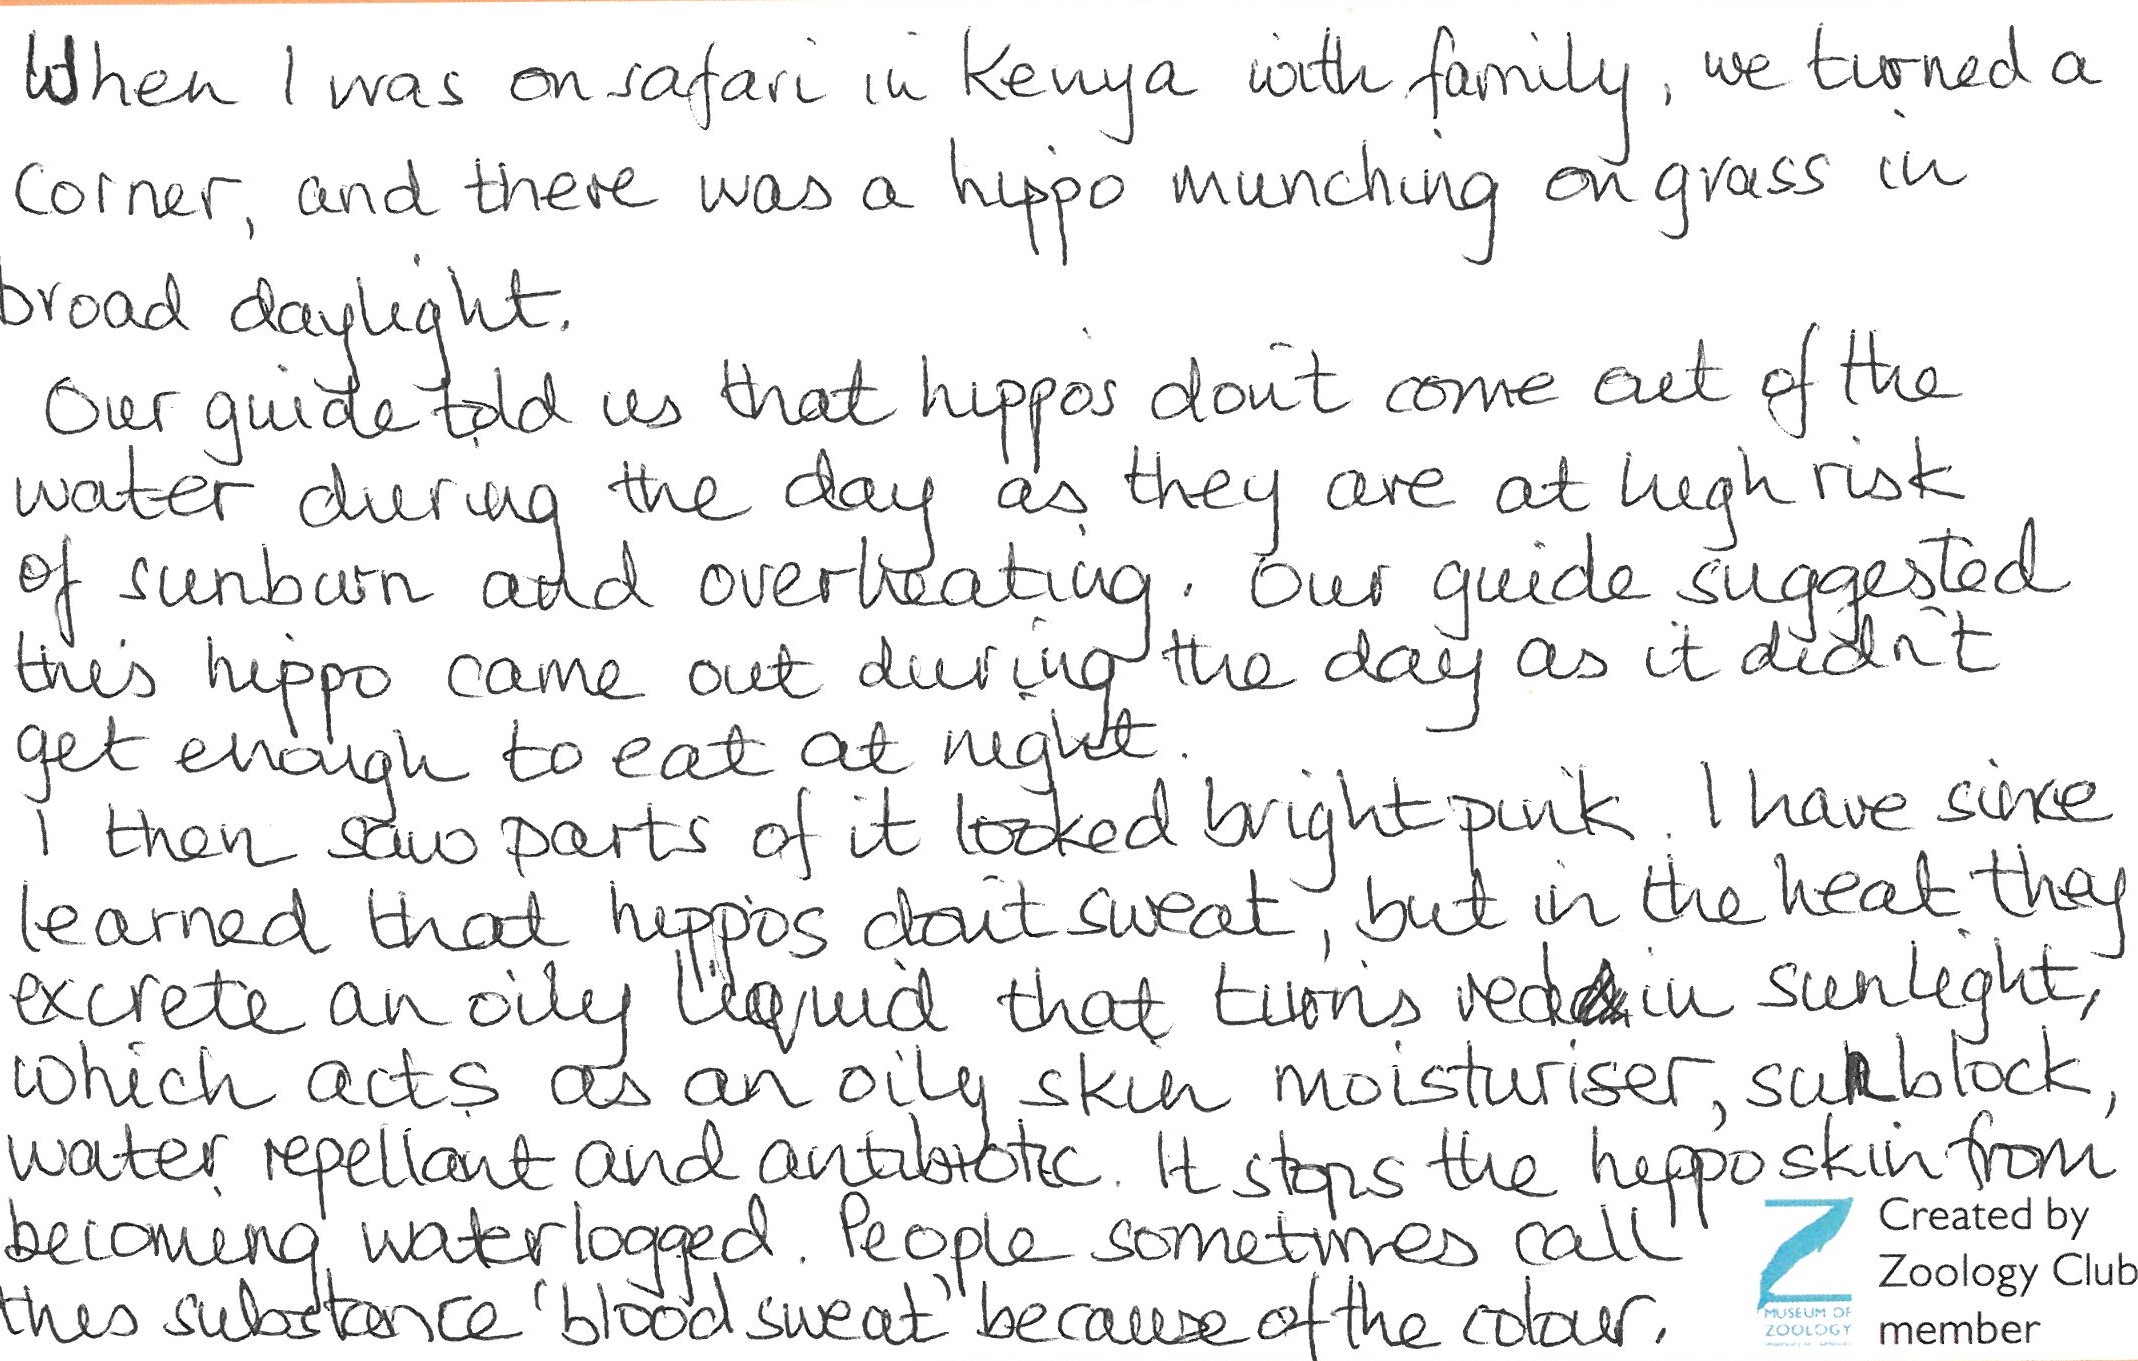 When I was on safari in Kenya with family, we turned a
corner, and there was a hippo munching on grass in
broad daylight.
Our guide told us that hippos don't come out of the
water during the day as they are at high risk
of sunburn and overheating. Our guide suggested
this hippo came out during the day as it didn't
get enough to eat at night.
I then saw parts of it looked bright pink. I have since
learned that hippos don't sweat, but in the heat they
excrete an oily liquid that turns red in sunlight,
which acts as an oily skin moisturiser, sunblock,
water repellant and antibiotic. It stops the hippo skin from
becoming waterlogged. People sometimes call
this substance 'blood sweat' because of the colour.
MUSEUM OF
ZOOLOGY
Created by
Zoology Club
member